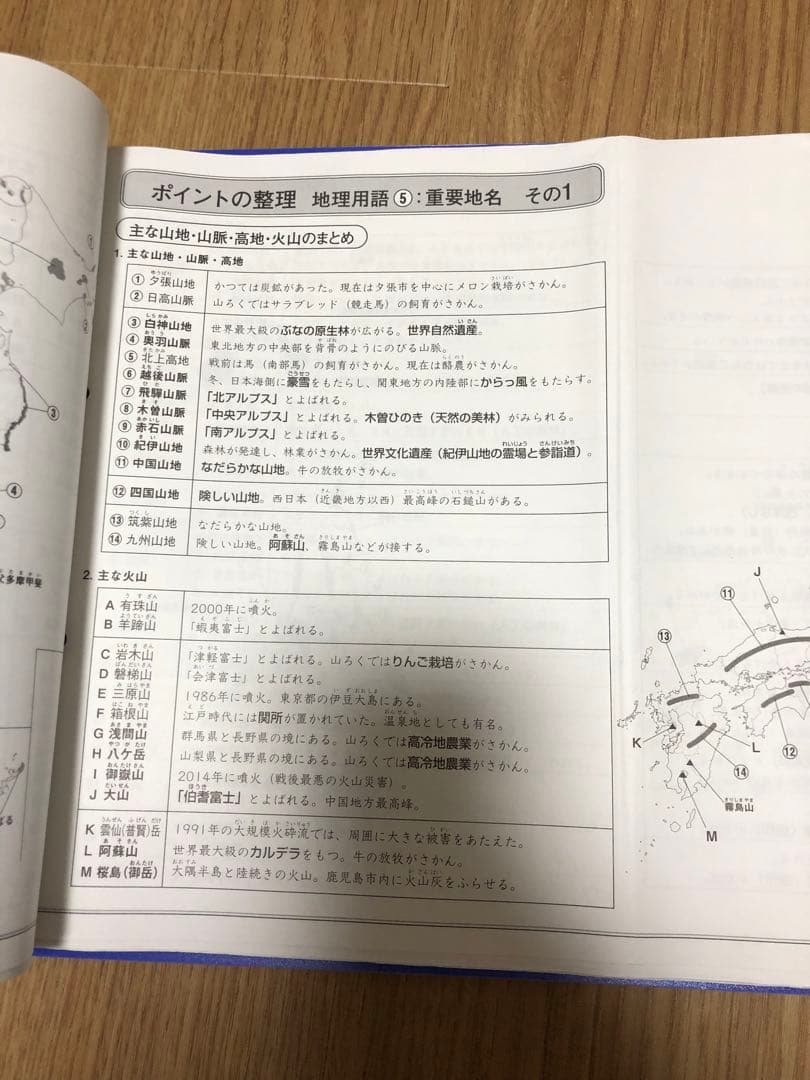 ポイントの整理 地理用語⑤：重要地名 その1
主な山地・山脈・高地・火山のまとめ
1. 主な山地・山脈・高地
① 夕張山地 かつては炭鉱があった。現在は夕張市を中心にメロン栽培がさかん。
② 日高山脈 山ろくではサラブレッド（競走馬）の飼育がさかん。
③ 白神山地 世界最大級のぶなの原生林が広がる。世界自然遺産。
④ 奥羽山脈 東北地方の中央部を背骨のようにのびる山脈。
⑤ 北上高地 戦前は馬（南部馬）の飼育がさかん。現在は酪農がさかん。
⑥ 越後山脈 冬、日本海側に豪雪をもたらし、関東地方の内陸部にからっ風をもたらす。
⑦ 飛驒山脈 「北アルプス」とよばれる。
⑧ 木曽山脈 「中央アルプス」とよばれる。木曽ひのき（天然の美林）がみられる。
⑨ 赤石山脈 「南アルプス」とよばれる。
⑩ 紀伊山地 森林が発達し、林業がさかん。世界文化遺産（紀伊山地の霊場と参詣道）。
⑪ 中国山地 なだらかな山地。牛の放牧がさかん。
⑫ 四国山地 険しい山地。西日本（近畿地方以西）最高峰の石鎚山がある。
⑬ 筑紫山地 なだらかな山地。
⑭ 九州山地 険しい山地。阿蘇山、霧島山などが接する。
2. 主な火山
A 有珠山 2000年に噴火。
B 羊蹄山 「蝦夷富士」とよばれる。
C 岩木山 「津軽富士」とよばれる。山ろくではりんご栽培がさかん。
D 磐梯山 「会津富士」とよばれる。
E 三原山 1986年に噴火。東京都の伊豆大島にある。
F 箱根山 江戸時代には関所が置かれていた。温泉地としても有名。
G 浅間山 群馬県と長野県の境にある。山ろくでは高冷地農業がさかん。
H 八ケ岳 山梨県と長野県の境にある。山ろくでは高冷地農業がさかん。
I 御嶽山 2014年に噴火（戦後最悪の火山災害）。
J 大山 「伯耆富士」とよばれる。中国地方最高峰。
K 雲仙（普賢）岳 1991年の大規模火砕流では、周囲に大きな被害をあたえた。
L 阿蘇山 世界最大級のカルデラをもつ。牛の放牧がさかん。
M 桜島（御岳） 大隅半島と陸続きの火山。鹿児島市内に火山灰をふらせる。
①
③
④
多摩甲斐
J
⑪
⑬
K
L
⑫
⑭
霧島山
M